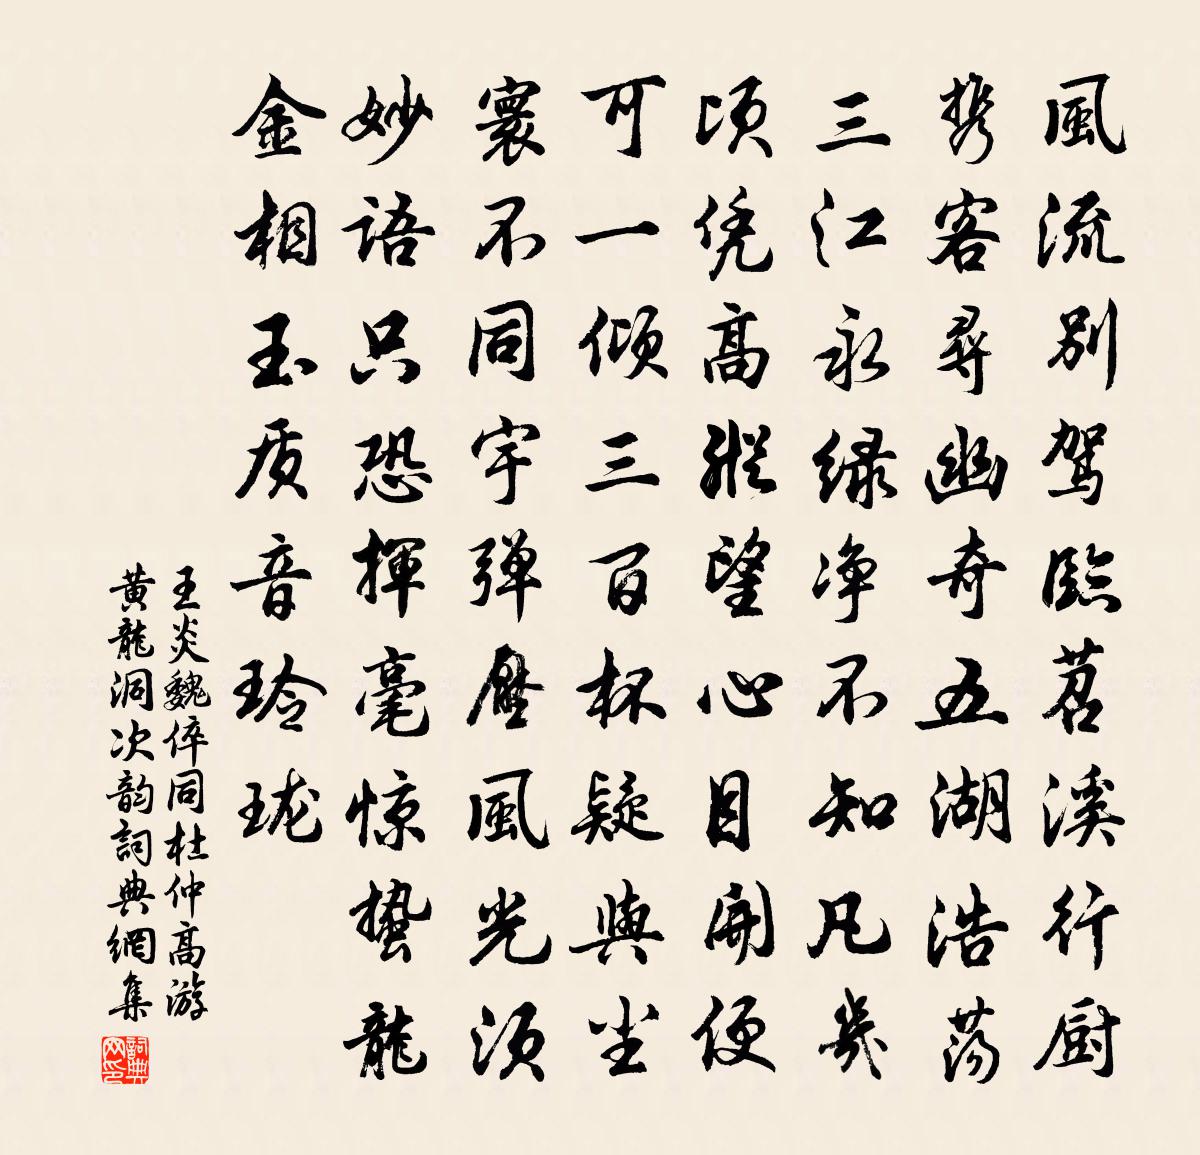 風流别驾臨苕溪行厨
携客尋幽奇五湖浩荡
三江永绿净不知凡幾
頃凭高縱望心目開便
可一倾三百杯疑與尘
寰不同宇弹壓風光须
妙語只恐揮毫惊蛰龍
金相玉质音玲珑
王炎魏倅同杜仲高游
黄龍洞次韵詞典網集
詞典
网印